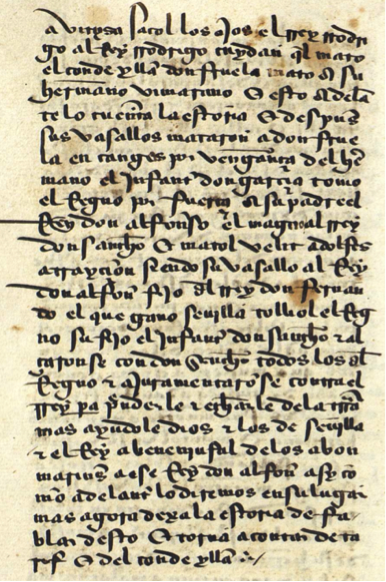 a vitysa saco los ojos el rrey rrodri
go al Rey rrodrigo cuydan ql mato
el conde yllan don fruela mato a su
hermano vimarano & esto adelan
te lo cuenta la estoria & despues
sus vasallos mataron a don frue
la en cangas por vengança del her
mano el infant don garcia tomo
el Regno por fuerça a su padre el
Rey don alfonso el magno al rrey
don sancho & matol velit adolfes
a trayçion seendo su vasallo al Rey
don alfon fijo del rrey don fernan
do el que gano sevilla tolliol el Reg
no su fijo el infant don sancho & al
çaronse con don sancho todos los del
Regno & ajuramentarose contra el
rrey pa prenderle & echarle de la trra
mas ayudole dios & los de sevilla
& el Rey abeneiuful de los abon
marines a ese Rey don alfon asy co
mo adelant lo diremos en su lugar
mas agora dexa la estoria de fa
blar desto & torna a contar de ta
rif & del conde yllan